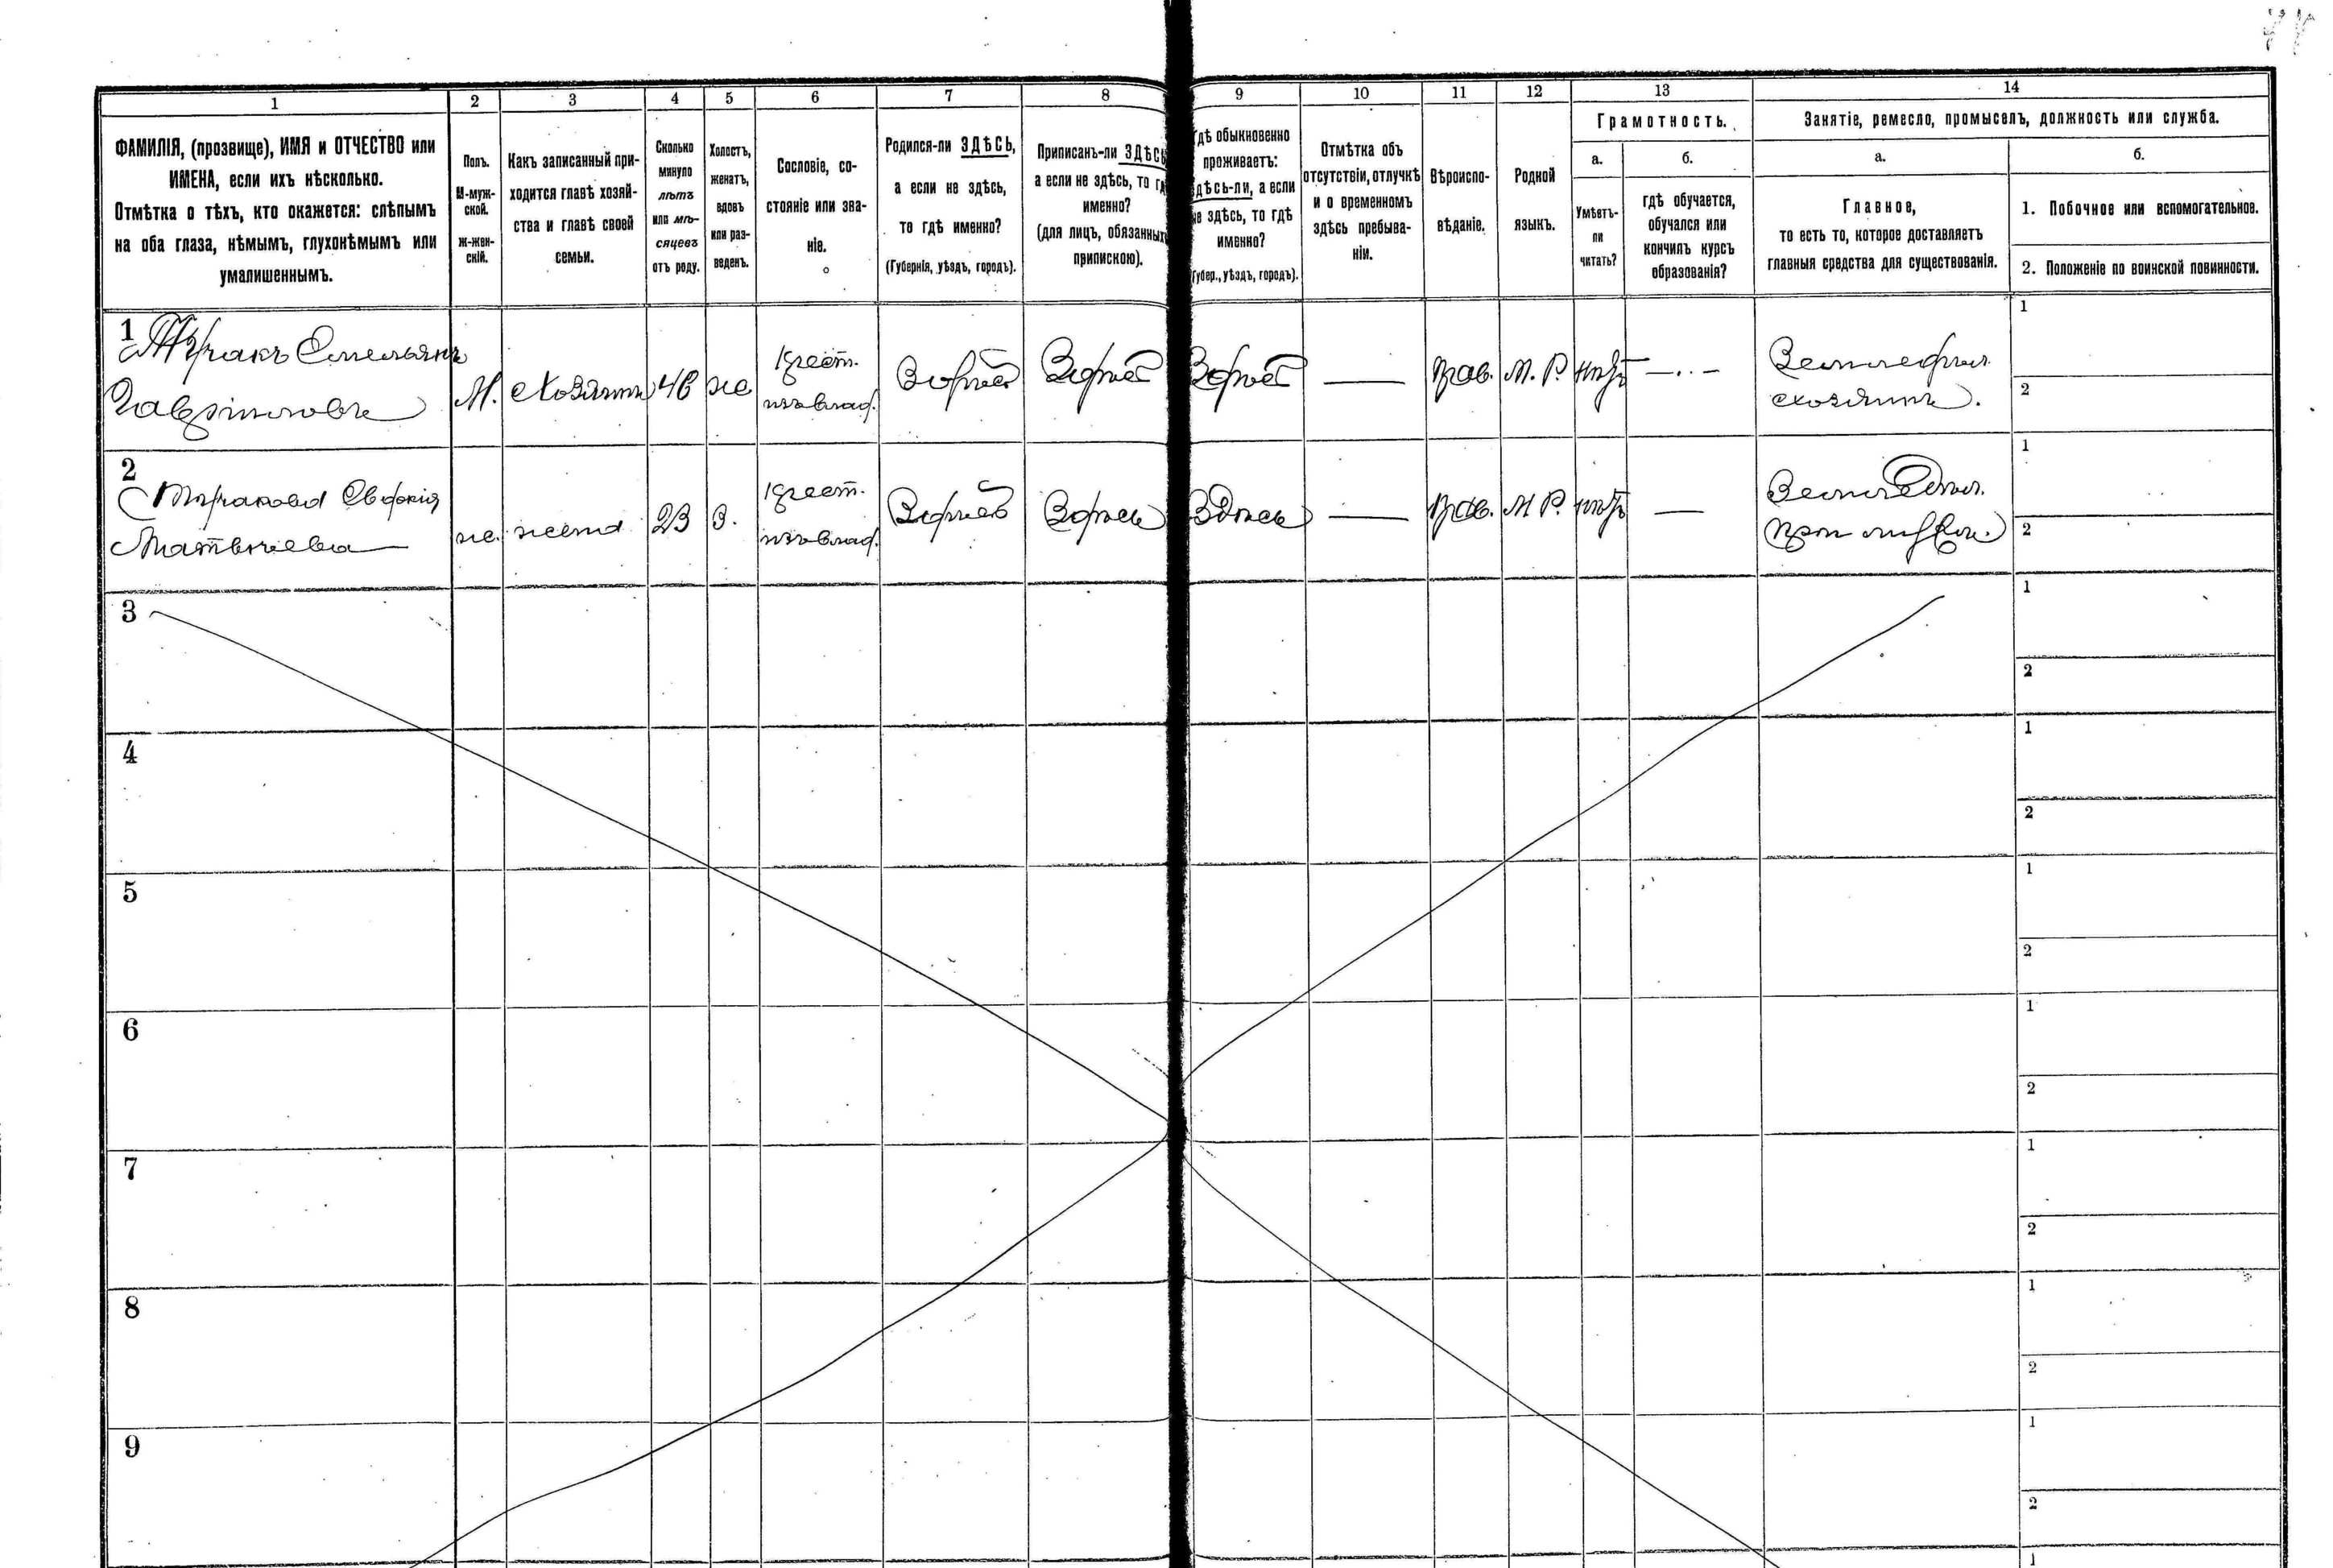 1 2 3 4 5 6 7 8 9 10 11 12 13 14
ФАМИЛІЯ, (прозвище), ИМЯ и ОТЧЕСТВО или
ИМЕНА, если ихъ нѣсколько.
Отмѣтка о тѣхъ, кто окажется: слѣпымъ
на оба глаза, нѣмымъ, глухонѣмымъ или
умалишеннымъ.
Полъ.
М-муж-
ской.
Ж-жен-
скій.
Какъ записанный при-
ходится главѣ хозяй-
ства и главѣ своей
семьи.
Сколько
минуло
лѣтъ
или мѣ-
сяцевъ
отъ роду.
Холостъ,
женатъ,
вдовъ
или раз-
веденъ.
Сословіе, со-
стояніе или зва-
ніе.
Родился-ли ЗДѢСЬ,
а если не здѣсь,
то гдѣ именно?
(Губернія, уѣздъ, городъ).
Приписанъ-ли ЗДѢСЬ
а если не здѣсь, то гд
именно?
(для лицъ, обязанныхъ
припискою).
гдѣ обыкновенно
проживаетъ:
здѣсь-ли, а если
не здѣсь, то гдѣ
именно?
Губер., уѣздъ, городъ).
Отмѣтка объ
отсутствіи, отлучкѣ
и о временномъ
здѣсь пребыва-
ніи.
Вѣроиспо-
вѣданіе.
Родной
языкъ.
Грамотность.
а.
Умѣетъ-
ли
читать?
б.
гдѣ обучается,
обучался или
кончилъ курсъ
образованія?
Занятіе, ремесло, промыселъ, должность или служба.
а.
Главное,
то есть то, которое доставляетъ
главныя средства для существованія.
б.
1. Побочное или вспомогательное.
2. Положеніе по воинской повинности.
1
Емельянъ
Гавриловъ
М. Хозяинъ 46 ж
крест.
изъ влад.
Здѣсь Здѣсь Здѣсь — Прав. М. Р. нѣтъ —
Земледѣл.
хозяинъ.
1
2
2
Матвѣева
ж. жена 23 З.
крест.
изъ влад.
Здѣсь Здѣсь Здѣсь — Прав. М Р. нѣтъ —
Земледѣл.
при
1
2
3
1
2
4
1
2
5
1
2
6
1
2
7
1
2
8
1
2
9
1
2
1